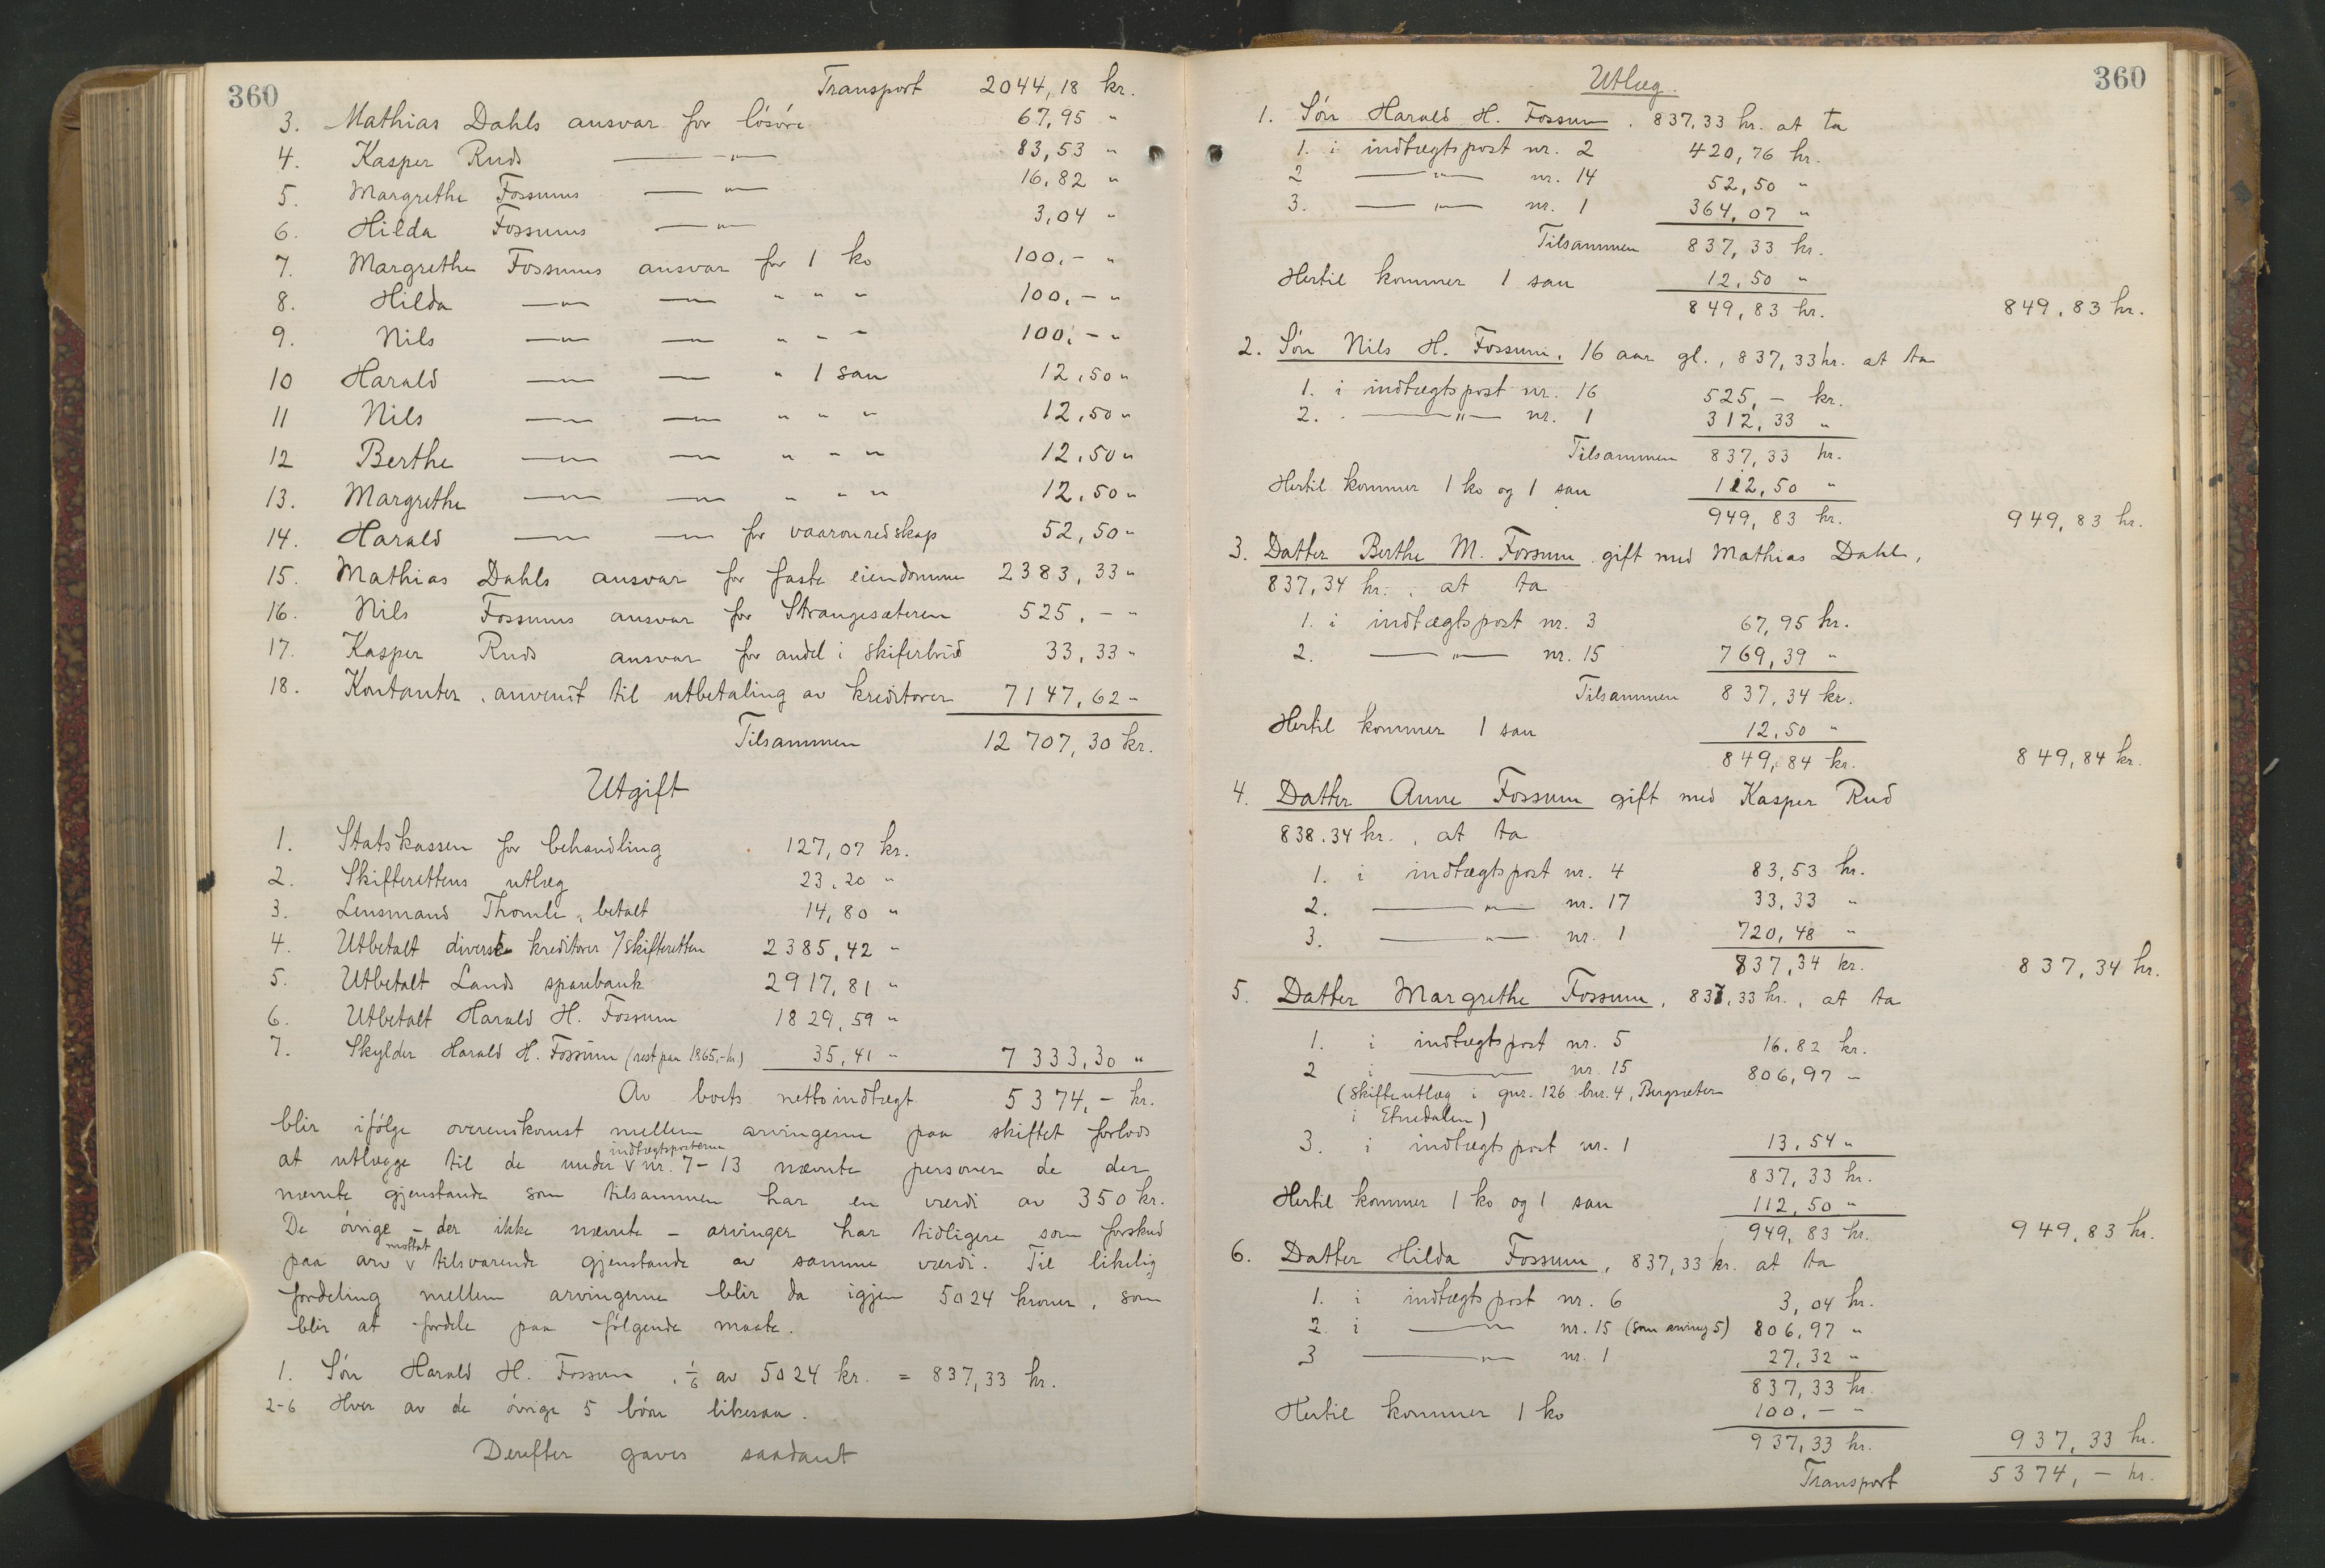 360
Transport 2044,18 kr.
3. Mathias Dahls ansvar for lösöre 67,95 "
4. Kasper Ruds —"— 83,53 "
5. Margrethe Fossums —"— 16,82 "
6. Hilda Fossums —"— 3,04 "
7. Margrethe Fossums ansvar for 1 ko 100,- "
8. Hilda —"— —"— " " " 100,- "
9. Nils —"— —"— " " " 100,- "
10 Harald —"— —"— " 1 sau 12,50 "
11 Nils —"— —"— " " " 12,50 "
12 Berthe —"— —"— " " " 12,50 "
13. Margrethe —"— —"— " " " 12,50 "
14. Harald —"— —"— for vaaronredskap 52,50 "
15. Mathias Dahls ansvar for faste eiendomme 2383,33 "
16. Nils Fossums ansvar for Strangesæteren 525,- "
17. Kasper Ruds ansvar for andel i skiferbrud 33,33 "
18. Kontanter, anvendt til utbetaling av kreditorer 7147,62 "
Tilsammen 12 707,30 kr.
Utgift
1. Statskassen for behandling 127,07 kr.
2. Skifterettens utlæg 23,20 "
3. Lensmand Thomle, betalt 14,80 "
4. Utbetalt diverse kreditorer v/skifteretten 2385,42 "
5. Utbetalt Lands sparebank 2917,81 "
6. Utbetalt Harald H. Fossum 1829,59 "
7. Skylder Harald H. Fossum (rest paa 1865,- kr) 35,41 " 7333,30 "
Av boets nettoindtægt 5374,- kr.
blir ifölge overenskomst mellem arvingerne paa skiftet forlods
at utlægge til de under indtægtsposterne nr. 7-13 nævnte personer de der
nævnte gjenstande som tilsammen har en værdi av 350 kr.
De övrige - der ikke nævnte - arvinger har tidligere som forskud
paa arv mottat tilsvarende gjenstande av samme værdi. Til likelig
fordeling mellem arvingerne blir da igjen 5024 kroner, som
blir at fordele paa fölgende maate.
1. Sön Harald H. Fossum, 1/6 av 5024 kr. = 837,33 kr.
2-6 Hver av de övrige 5 börn likesaa.
Derefter gaves saadant
360
Utlæg.
1. Sön Harald H. Fossum, 837,33 kr. at ta
1. i indtægtspost nr. 2 420,76 kr.
2 —"— nr. 14 52,50 "
3. —"— nr. 1 364,07 "
Tilsammen 837,33 kr.
Hertil kommer 1 sau 12,50 "
849,83 kr. 849,83 kr.
2. Sön Nils H. Fossum, 16 aar gl., 837,33 kr. at ta
1. i indtægtspost nr. 16 525,- kr.
2. —"— nr. 1 312,33 "
Tilsammen 837,33 kr.
Hertil kommer 1 ko og 1 sau 112,50 "
949,83 kr. 949,83 kr.
3. Datter Berthe M. Fossum gift med Mathias Dahl,
837,34 kr., at ta
1. i indtægtspost nr. 3 67,95 kr.
2. —"— nr. 15 769,39 "
Tilsammen 837,34 kr.
Hertil kommer 1 sau 12,50 "
849,84 kr. 849,84 kr.
4. Datter Anne Fossum gift med Kasper Rud
838.34 kr., at ta
1. i indtægtspost nr. 4 83,53 kr.
2. —"— nr. 17 33,33 "
3. —"— nr. 1 720,48 "
837,34 kr. 837,34 kr.
5. Datter Margrethe Fossum, 837,33 kr., at ta
1. i indtægtspost nr. 5 16,82 kr.
2 i —"— nr. 15 806,97 "
(skifteutlæg i gnr. 126 bnr. 4, Bergsæter
i Etnedalen)
3. i indtægtspost nr. 1 13,54 "
837,33 kr.
Hertil kommer 1 ko og 1 sau 112,50 "
949,83 kr. 949,83 kr.
6. Datter Hilda Fossum, 837,33 kr. at ta
1. i indtægtspost nr. 6 3,04 kr.
2. i —"— nr. 15 (som arving 5) 806,97 "
3 —"— nr. 1 27,32 "
837,33 kr.
Hertil kommer 1 ko 100,- "
937,33 kr. 937,33 kr.
Transport 5374,- kr.